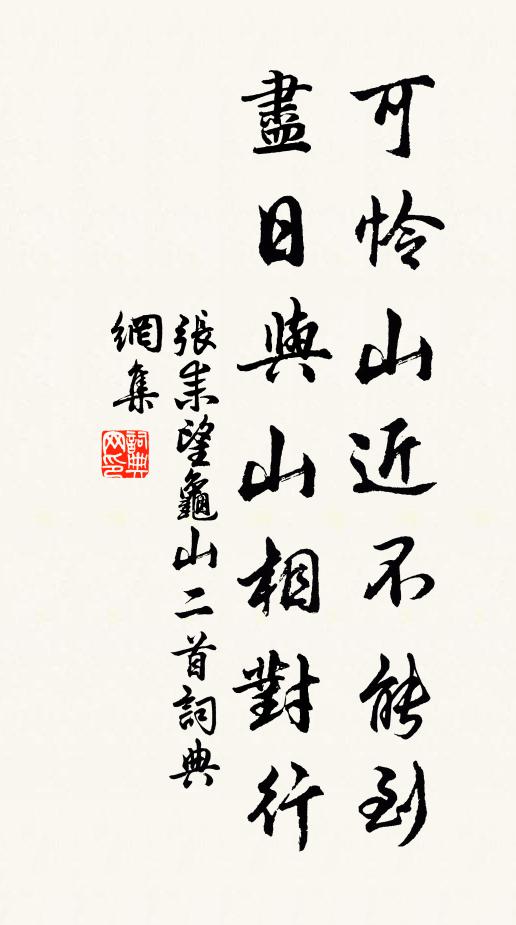 可怜山近不能到
盡日與山相對行
張耒望龜山二首詞典
網集
詞典
网印